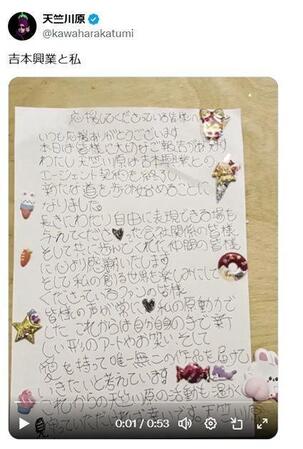 天竺川原
@kawaharakatumi
吉本興業と私
応援してくださっている皆様へ
いつも応援ありがとうございます
本日は皆様に大切なご報告があります
わたし天竺川原は吉本興業との
エージェント契約を終了し
新たな道を歩み始めることに
なりました。
長きにわたり自由に表現できる場を
与えてくださった会社関係の皆様
そして共に歩んでくれた仲間の皆様
に心より感謝いたします
そして私の創る世界を楽しみにして
くださっているファンの皆様
皆様の声が常に私の原動力で
した これからは自分自身の手で新
しい形のアートやお笑い そして
愛を持って唯一無二の作品を届けて
いきたいと考えています
これからの天竺川原の活動も温かく
見守っていただけると幸いです。天竺川原
0:01 / 0:53